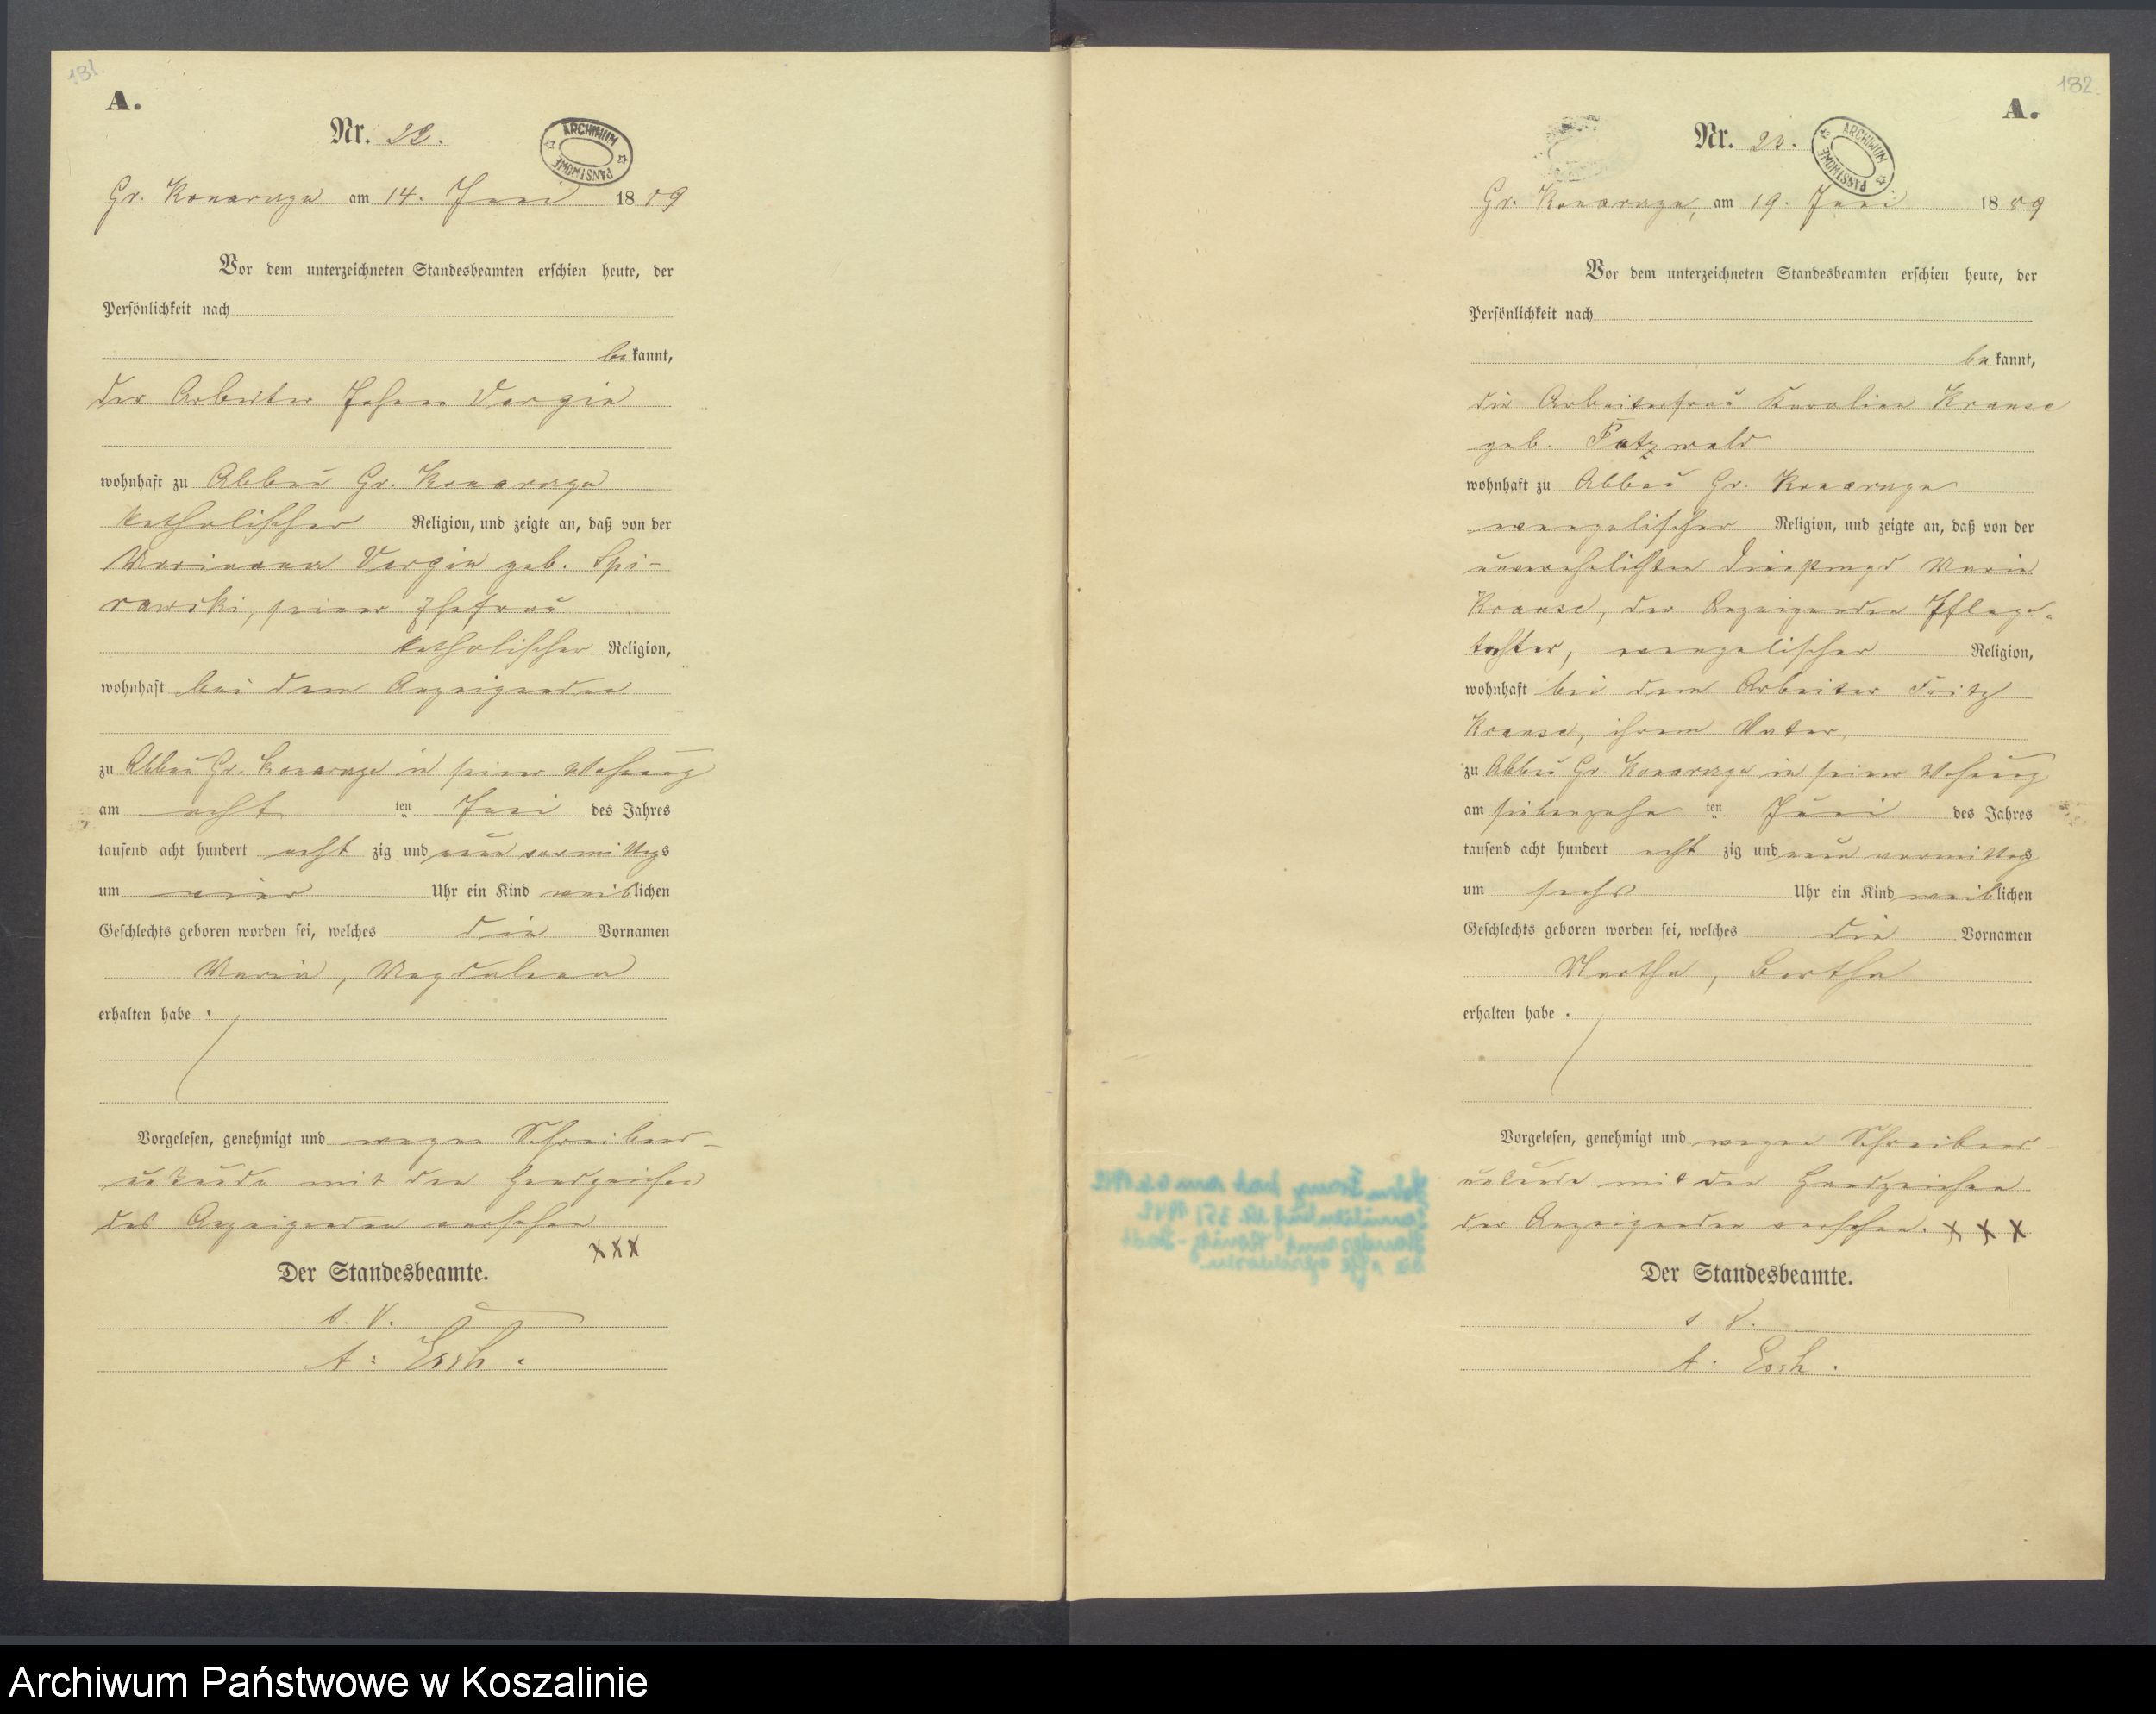 131.
A.
Nr. 22.
ARCHIWUM PAŃSTWOWE
Gr. Konarczyn am 14. Juni 1889
Vor dem unterzeichneten Standesbeamten erschien heute, der
Persönlichkeit nach
be kannt,
der Arbeiter Johann Vergin
wohnhaft zu Abbau Gr. Konarczyn
katholischer Religion, und zeigte an, daß von der
Marianna Vergin geb. Spi-
rawski, seiner Ehefrau
katholischer Religion,
wohnhaft bei dem Anzeigenden
zu Abbau Gr. Konarczyn in seiner Wohnung
am acht ten Juni des Jahres
tausend acht hundert acht zig und neun vormittags
um vier Uhr ein Kind weiblichen
Geschlechts geboren worden sei, welches die Vornamen
Maria, Magdalena
erhalten habe .
Vorgelesen, genehmigt und wegen Schreibens-
unkunde mit den Handzeichen
des Anzeigenden versehen
XXX
Der Standesbeamte.
i. V.
A. Essh.
132.
A.
Nr. 23.
ARCHIWUM PAŃSTWOWE
Gr. Konarczyn, am 19. Juni 1889
Vor dem unterzeichneten Standesbeamten erschien heute, der
Persönlichkeit nach
be kannt,
die Arbeiterfrau Karoline Krause
geb. Patzwald
wohnhaft zu Abbau Gr. Konarczyn
evangelischer Religion, und zeigte an, daß von der
unverehelichten Dienstmagd Marie
Krause, der Anzeigenden Pflege-
tochter, evangelischer Religion,
wohnhaft bei dem Arbeiter Fritz
Krause, ihrem Vater,
zu Abbau Gr. Konarczyn in seiner Wohnung
am siebenzehn ten Juni des Jahres
tausend acht hundert acht zig und neun vormittags
um sechs Uhr ein Kind weiblichen
Geschlechts geboren worden sei, welches die Vornamen
Martha, Bertha
erhalten habe .
Vorgelesen, genehmigt und wegen Schreibens-
unkunde mit den Handzeichen
der Anzeigenden versehen. X X X
Der Standesbeamte.
i. V.
A. Essh.
Archiwum Państwowe w Koszalinie